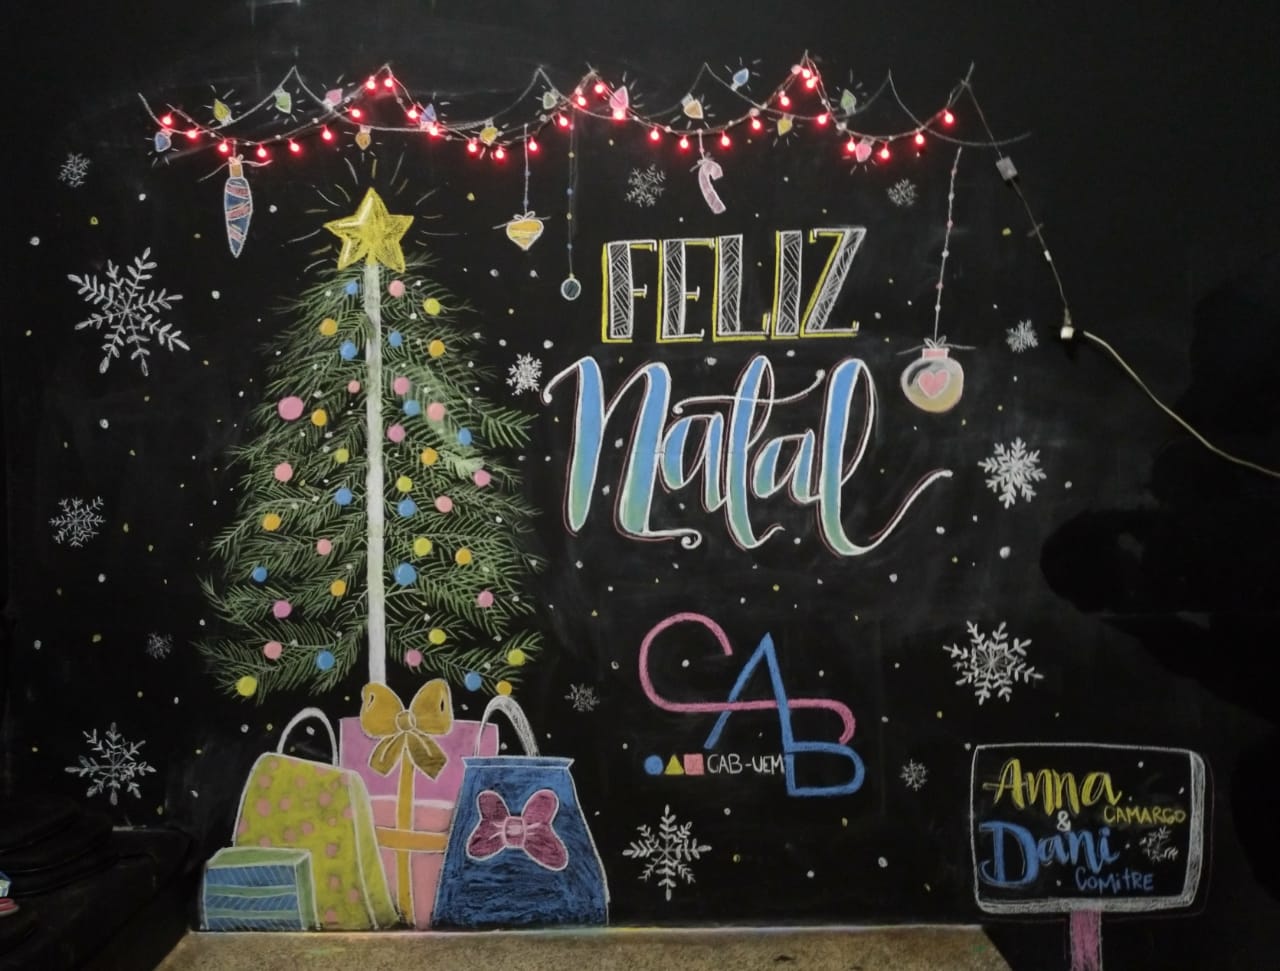 FELIZ
Natal
CAB
CAB-UEM
Anna
CAMARGO
&
Dani
COMITRE